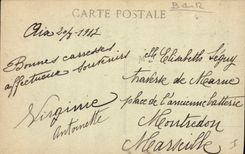 B.d.R
CARTE POSTALE
Aix 1912
Bonnes caresses
affectueux souvenirs
Virginie
Antoinette
Elisabeth
traverse de
place de l'ancienne batterie
Montredon
Marseille